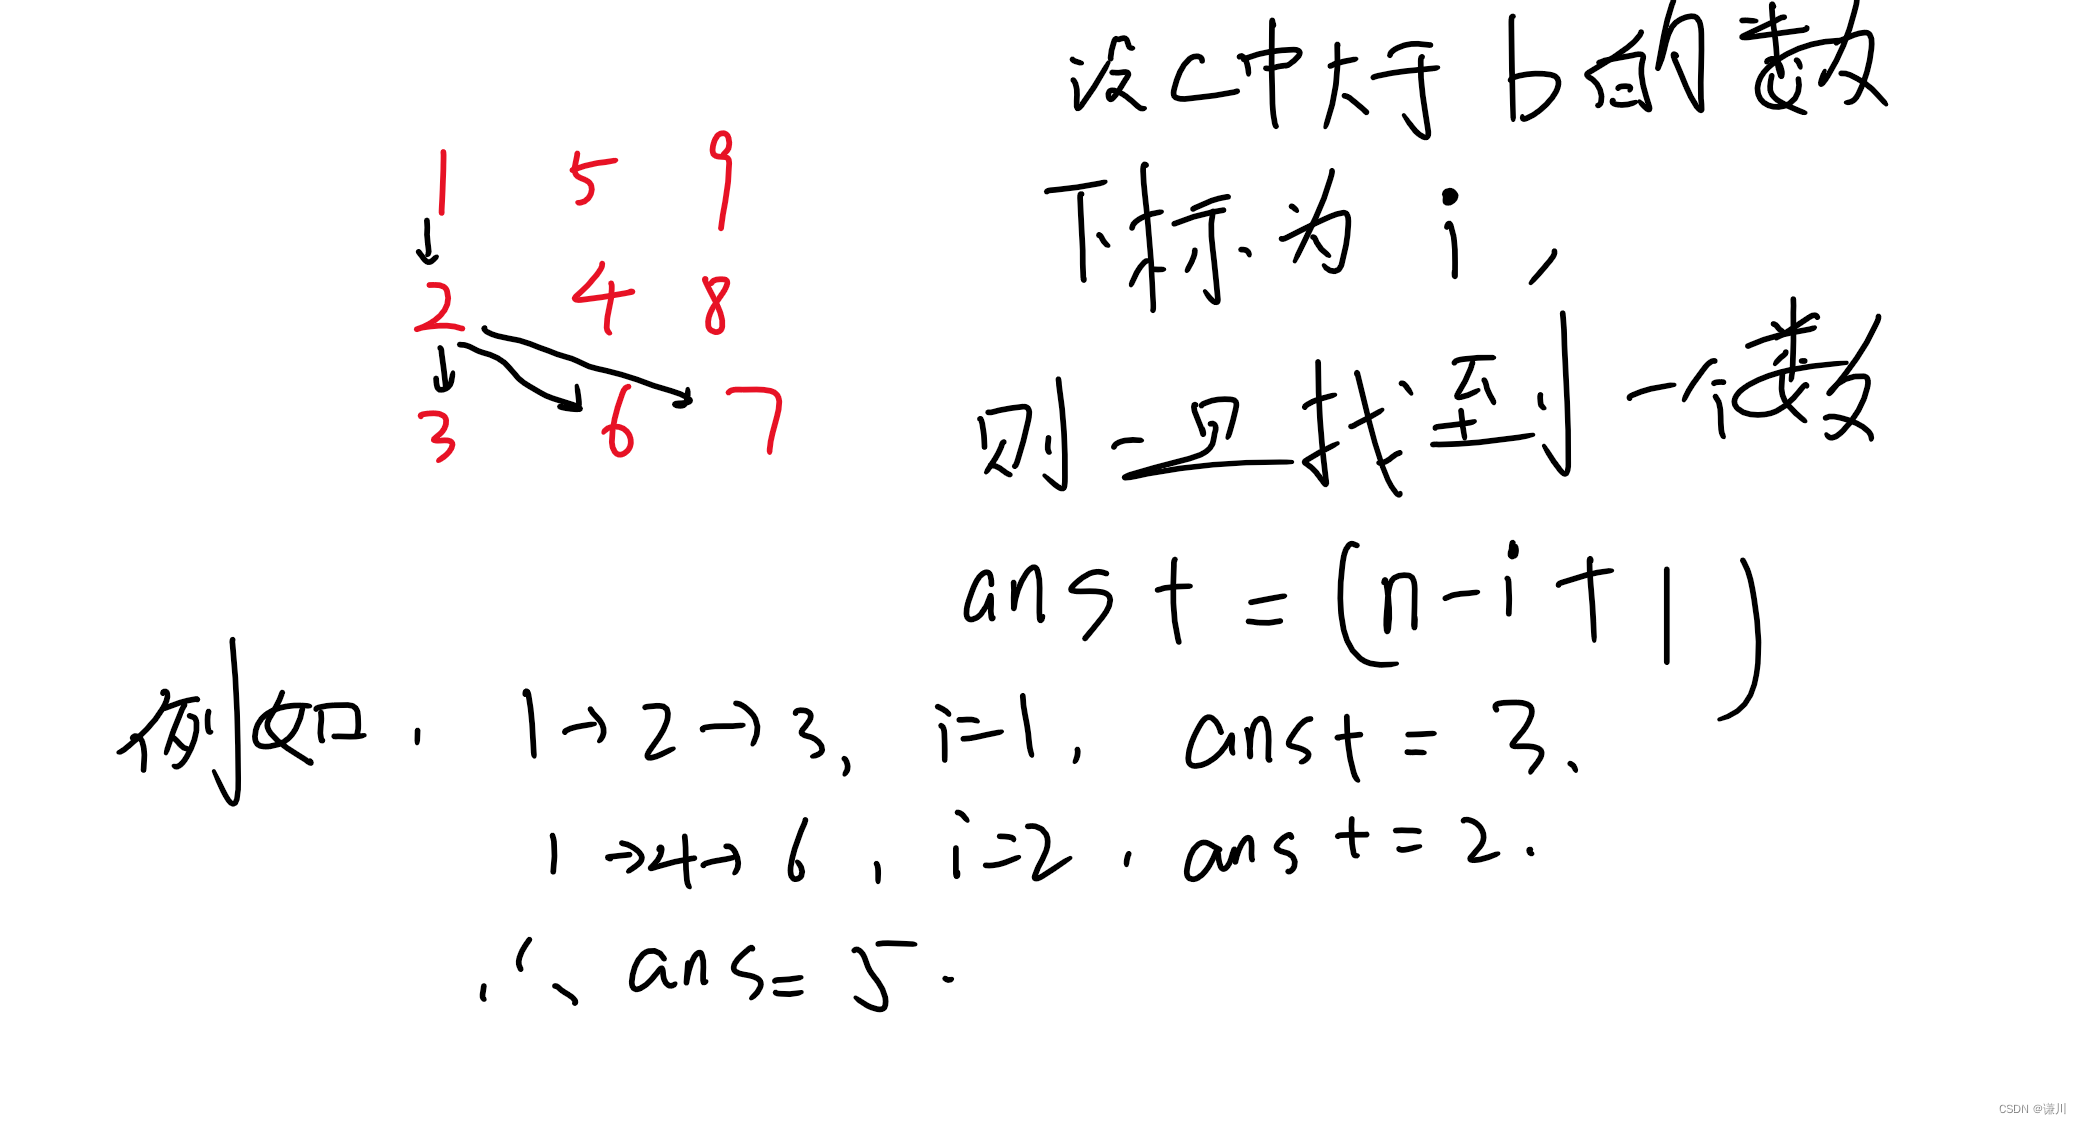 设C中大于b的数
下标为i,
则一旦找到一个数
ans+=(n-i+1)
1 5 9
2 4 8
3 6 7
例如, 1→2→3, i=1, ans+=3.
1→4→6, i=2, ans+=2.
∴ ans=5.
CSDN @谦川